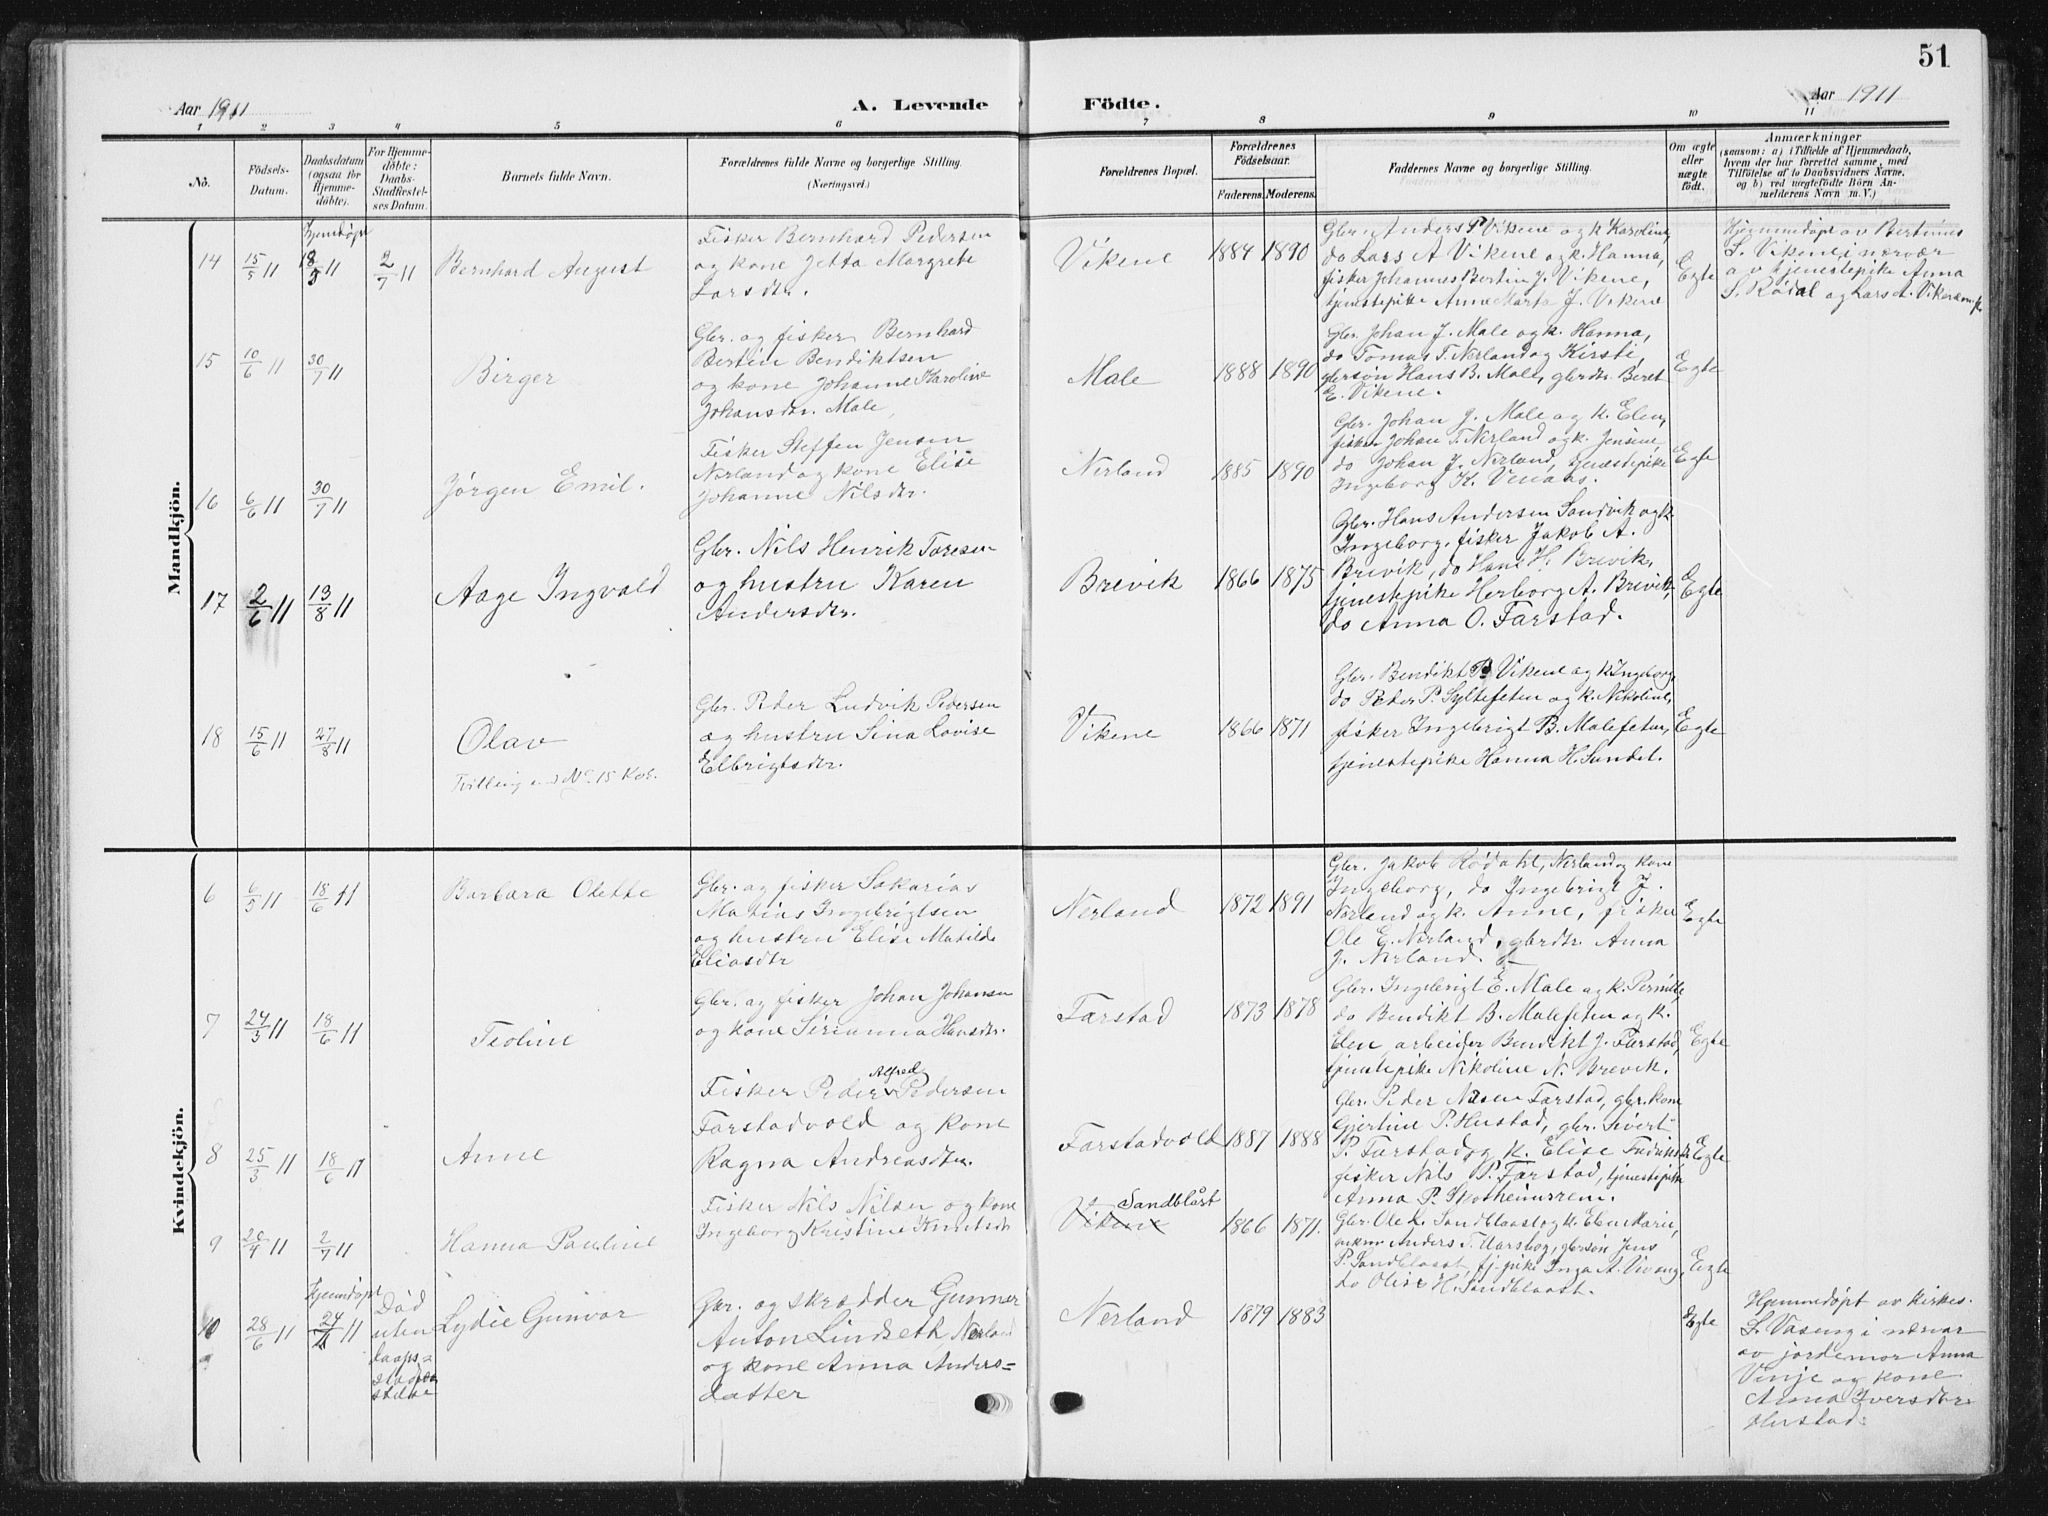 51
Aar 1911
A. Levende Födte.
Aar 1911
1 2 3 4 5 6 7 8 9 10 11
No.
Födsels-
Datum.
Daabsdatum
(ogsaa for
Hjemme-
döbte).
For Hjemme-
döbte:
Daabs-
Stadfæstel-
ses Datum.
Barnets fulde Navn.
Forældrenes fulde Navne og borgerlige Stilling.
(Næringsvei.)
Forældrenes Bopæl.
Forældrenes
Födselsaar.
Faderens. Moderens.
Faddernes Navne og borgerlige Stilling.
Om ægte
eller
uægte
født.
Anmærkninger
(saasom: a) i Tilfælde af Hjemmedaab,
hvem der har forrettet samme, med
Tilföielse af to Daabsvidners Navne,
og b) ved uægtefödte Börn An-
melderens Navn m. V.)
Mandkjön.
14
15/5 11
Hjemdøpt
18/5 11
2/7 11
Bernhard August
Fisker Bernhard Pedersen
og kone Jetta Margrete
Larsdtr.
Vikene
1884 1890
Gbr. Anders P. Vikene og k. Karoline,
do Lars A Vikene og k. Hanna,
fisker Johannes Bertin J. Vikene,
tjenestepike Anne Marta J. Vikene
Egte
Hjemmedøpt av Bertinus
S. Vikene i nærvær
av tjenestepike Anna
S. Rødal og Lars A. Vikene
15
10/6 11
30/7 11
Birger
Gbr. og fisker Bernhard
Bertin Bendiktsen
og kone Johanne Karoline
Johansdtr. Male,
Male
1888 1890
Gbr. Johan J. Male og k. Hanna,
do Tomas T. Nerland og Kirsti,
gbrsøn Hans B. Male, gbrdtr. Beret
E. Vikene.
Egte
16
6/6 11
30/7 11
Jørgen Emil.
Fisker Steffen Jensen
Nerland og kone Elise
Johanne Nilsdtr.
Nerland
1885 1890
Gbr. Johan J. Male og k. Elen,
fisker Johan T. Nerland og k. Jensine,
do Johan J. Nerland, tjenestepike
Ingeborg K. Venaas.
Egte
17
2/6 11
13/8 11
Aage Ingvald
Gbr. Nils Henrik Taresen
og hustru Karen
Andersdtr.
Brevik
1866 1875
Gbr. Hans Andersen Sandvik og k.
Ingeborg, fisker Jakob A.
Brevik, do Hans H. Brevik,
tjenestepike Herborg A. Brevik,
do Anna O. Farstad.
Egte
18
15/6 11
27/8 11
Olav
Tvilling med No 15 Kv.
Gbr. Peder Ludvik Pedersen
og hustru Sina Lovise
Elbrigtsdtr.
Vikene
1866 1871
Gbr. Bendikt B Vikene og k. Ingeborg,
do Peder P. Syltefeten og k. Nikoline,
fisker Ingebrigt B. Malefeten,
tjenestepike Hanna H. Sundet.
Egte
Kvindekjön.
6
6/5 11
18/6 11
Barbara Olette
Gbr. og fisker Sakarias
Matias Ingebrigtsen
og hustru Elise Matilde
Eliasdtr
Nerland
1872 1891
Gbr. Jakob Rødahl, Nerland og kone
Ingeborg, do Ingebrigt J.
Nerland og k. Anne, fisker
Ole E. Nerland, gbrdtr. Anna
J. Nerland.
Egte
7
24/3 11
18/6 11
Teoline
Gbr. og fisker Johan Johansen
og kone Sirianna Hansdtr.
Farstad
1873 1878
Gbr. Ingebrigt E. Male og k. Pernille,
do Bendikt B. Malefeten og k.
Elen arbeider Bendikt J. Farstad,
tjenestepike Nikoline N. Brevik.
Egte
8
25/3 11
18/6 11
Anne
Fisker Peder Alfred Pedersen
Farstadvold og kone
Ragna Andreasdtr.
Farstadvold
1887 1888
Gbr. Peder Nilsen Farstad, gbr. kone
Gjertine P. Hustad, gbr. Sivert
P. Farstad og k. Elise
fisker Nils P. Farstad, tjenestepike
Anna P. Skotheimsrem.
Egte
9
20/4 11
2/7 11
Hanna Pauline
Fisker Nils Nilsen og kone
Ingeborg Kristine Knutsdtr
Sandblåst
Vikene
1866 1871.
Gbr. Ole L. Sandblaast og k. Elen Marie,
Anders T. Harsbog, gbrsøn Jens
P. Sandblaast, tj. pike Inga A. Vevang,
do Olise H. Sandblaast.
Egte
10
28/6 11
Hjemdøpt
24/ 11
Død
uten
daaps-
stadfæ
stelse
Lydie Gunvor
Gbr. og skrædder Gunner
Anton Lindseth Nerland
og kone Anna Anders-
datter
Nerland
1879 1883
Egte
Hjemmedøpt av kirkes.
L. Vaseng i nærvær
av jordemor Anna
Vinje og kone
Anna Iversdtr.
Hustad.